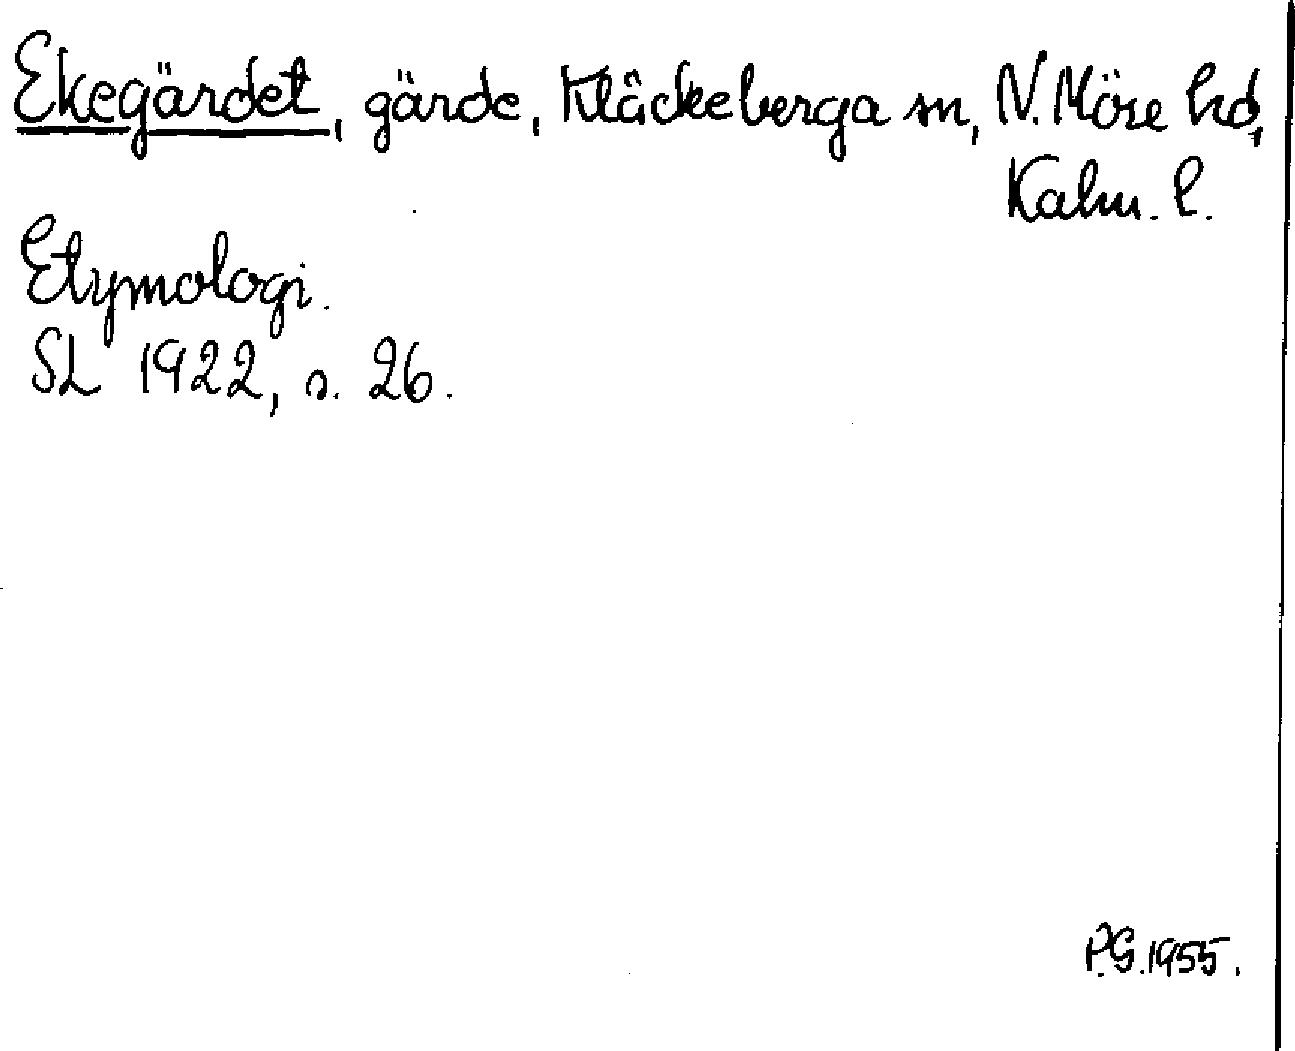 Ekegärdet, gärde, Kläckeberga sn, N. Möre hd,
Kalm. l.
Etymologi.
SL 1922, s. 26.
P.G. 1955.